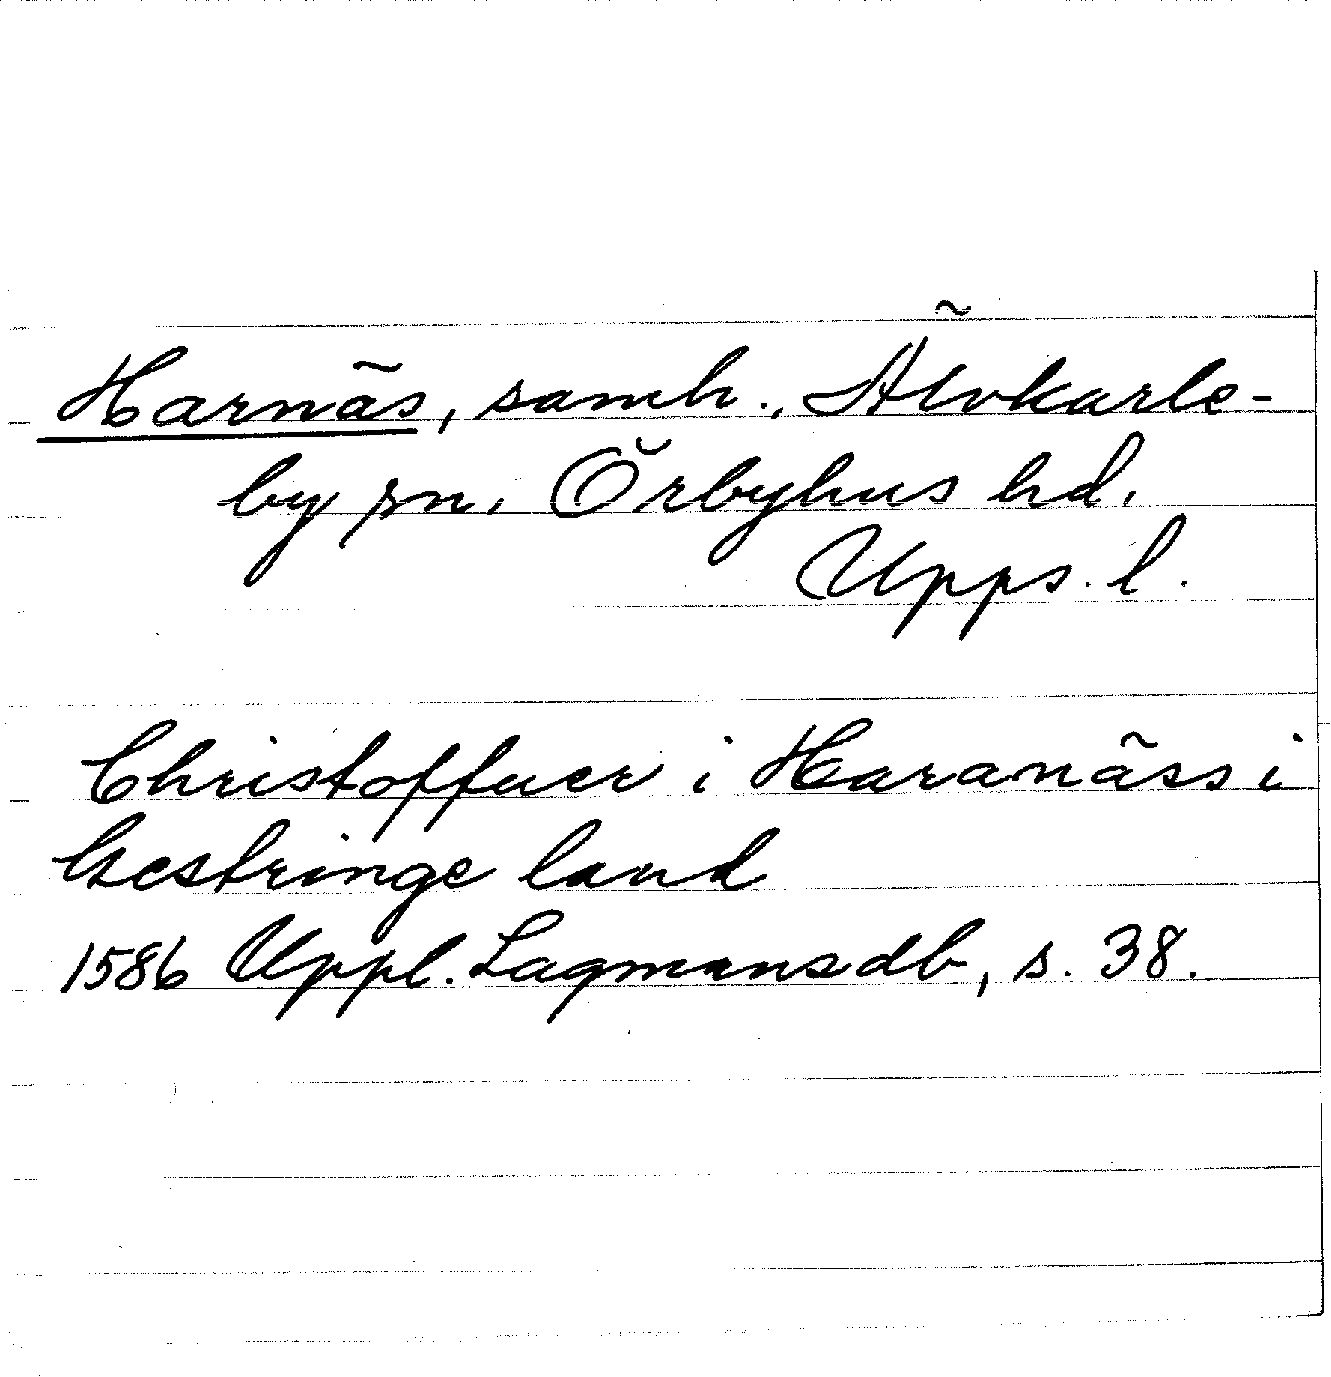 Harnäs, samh., Älvkarle-
by sn. Örbyhus hd.
Upps. l.
Christoffuer i Haranäss i
Gestringe land
1586 Uppl. Lagmansdb, s. 38.